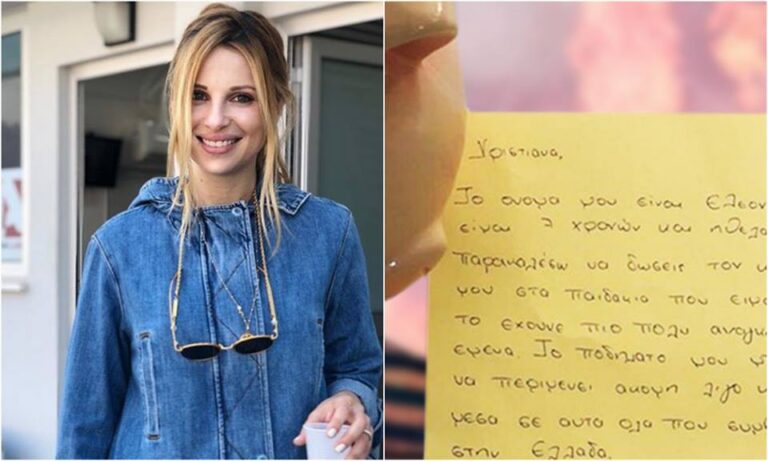 Χριστιανα,
Το ονομα μου ειναι
ειμαι 7 χρονών και ηθελα
παρακαλέσω να δωσεις τον
μου στα παιδακια που ειμα
το εχουνε πιο πολυ αναγκ
εμενα. Το ποδηλατο μου
να περιμενει ακομη λιγο κ
μεσα σε αυτα ολα που συμβ
στην Ελλαδα.